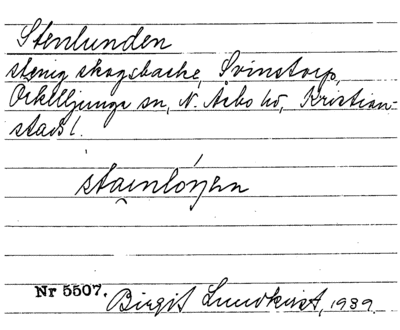 Stenlunden
stenig skogsbacke, Svinstorp,
Örkelljunga sn, N. Åsbo hd, Kristian-
stads l.
Nr 5507.
Birgit Lundkvist, 1939.